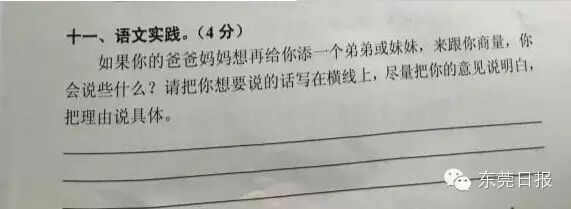 十一、语文实践。(4 分)
如果你的爸爸妈妈想再给你添一个弟弟或妹妹，来跟你商量，你
会说些什么？请把你想要说的话写在横线上，尽量把你的意见说明白，
把理由说具体。
东莞日报